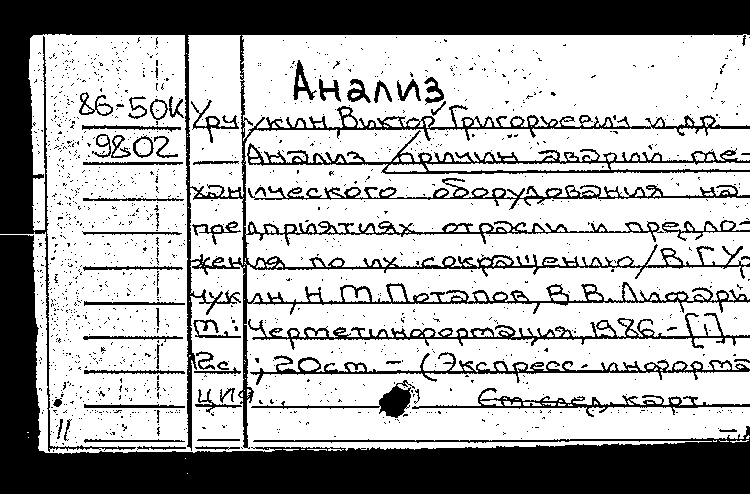 Анализ
86-50К Урчукин, Виктор Григорьевич и др.
9802 Анализ причин аварий ме-
ханического оборудования на
предприятиях отрасли и предло-
жения по их сокращению/В.Г.Ур
чукин, Н.М.Потапов, В.В.Лифар
М.: Черметинформация, 1986.-[1],
12с.; 20см. - (Экспресс-информа
ция...
См.след.карт.
11